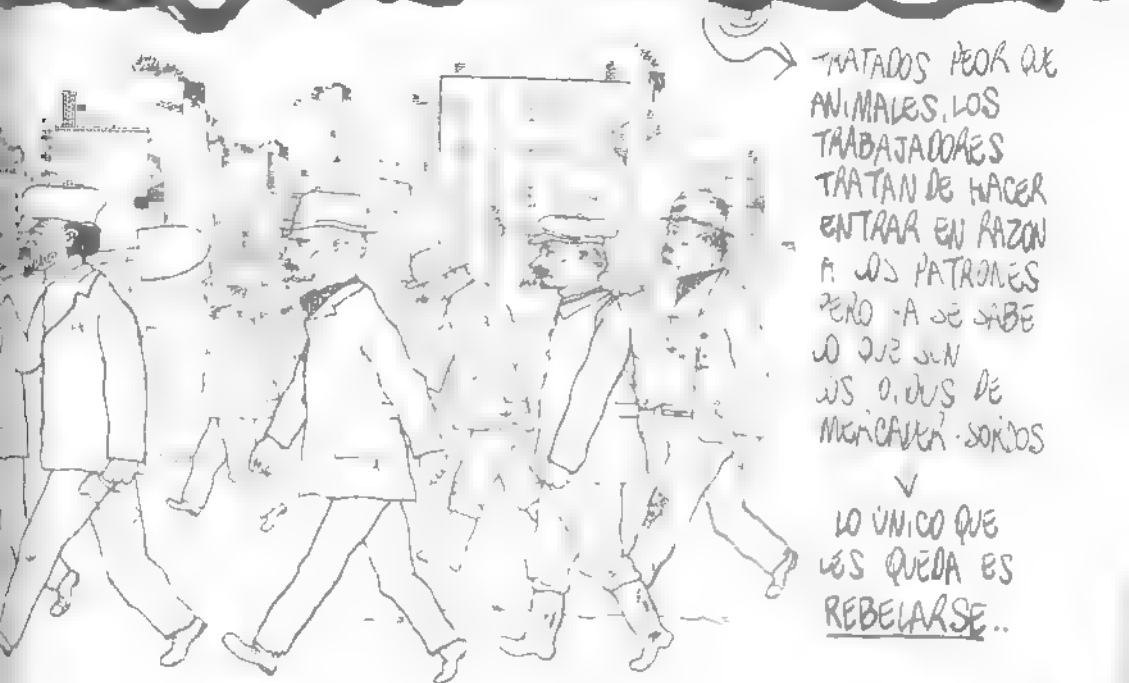 TRATADOS PEOR QUE
ANIMALES, LOS
TRABAJADORES
TRATAN DE HACER
ENTRAR EN RAZON
A LOS PATRONES
PERO YA SE SABE
LO QUE SON
LOS OIDOS DE
MERCADER: SORDOS
LO ÚNICO QUE
LES QUEDA ES
REBELARSE..